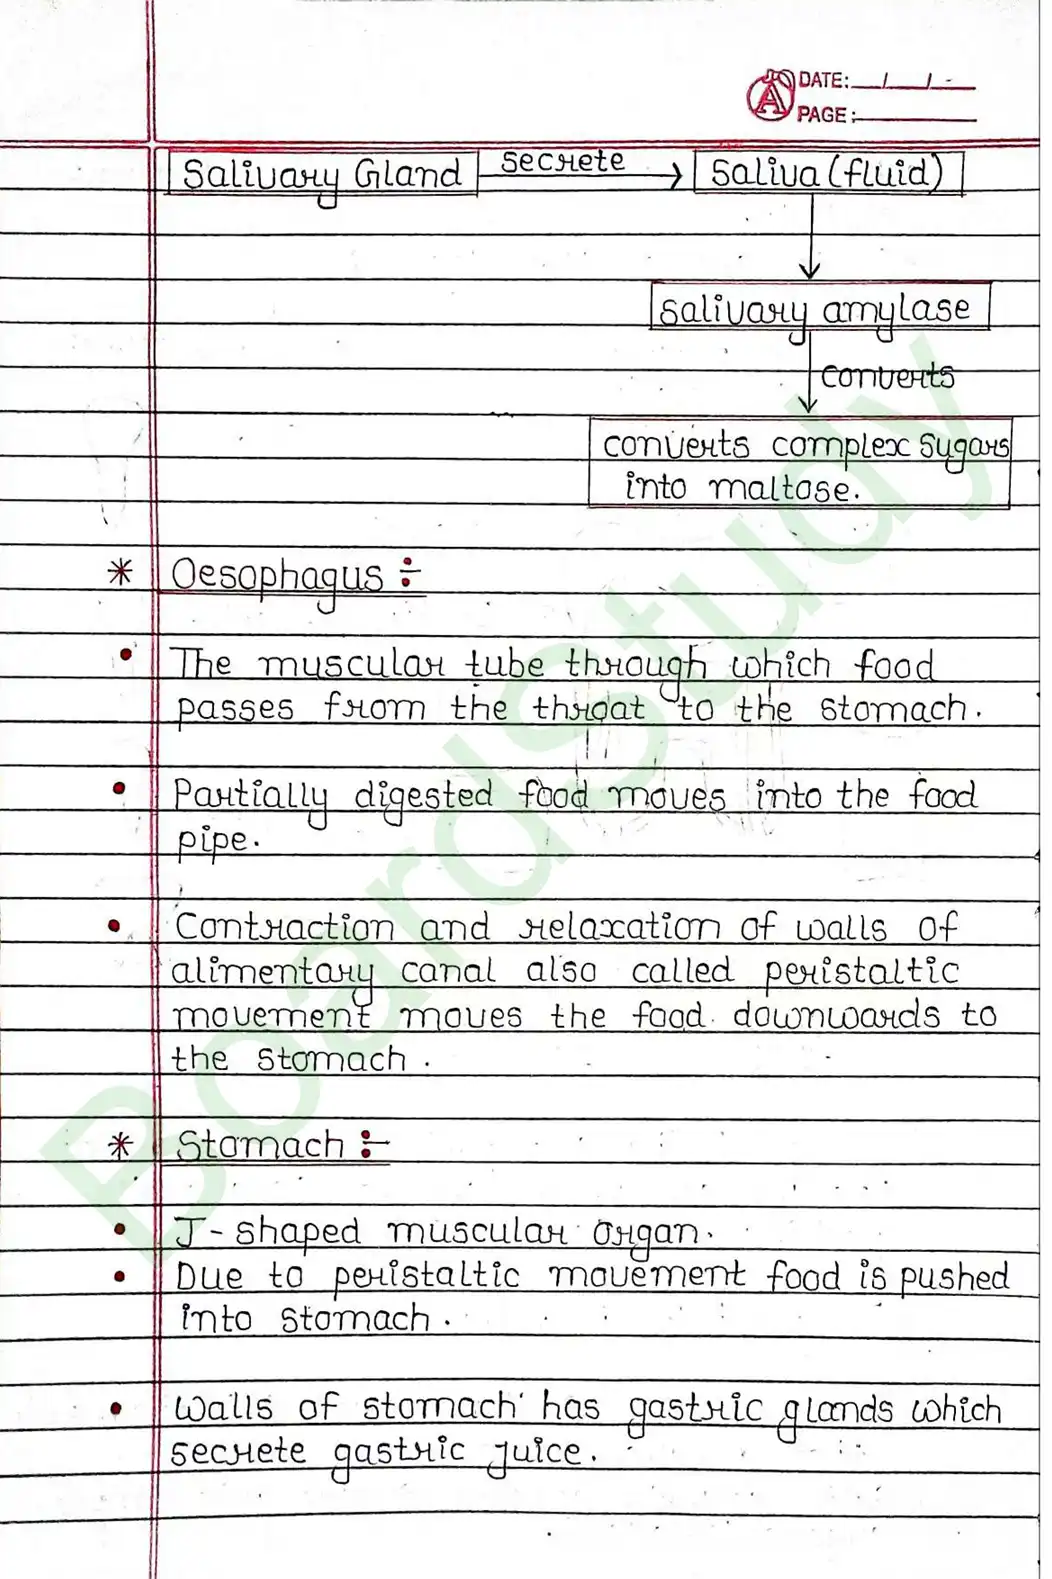 DATE: __/__/__
PAGE:
Salivary Gland secrete Saliva (fluid)
Salivary amylase
converts
converts complex Sugars
into maltose.
* Oesophagus :-
• The muscular tube through which food
passes from the throat to the stomach.
• Partially digested food moves into the food
pipe.
• Contraction and relaxation of walls of
alimentary canal also called peristaltic
movement moves the food downwards to
the stomach.
* Stomach :-
• J-shaped muscular organ.
• Due to peristaltic movement food is pushed
into stomach.
• Walls of stomach has gastric glands which
secrete gastric juice.
BoardStudy